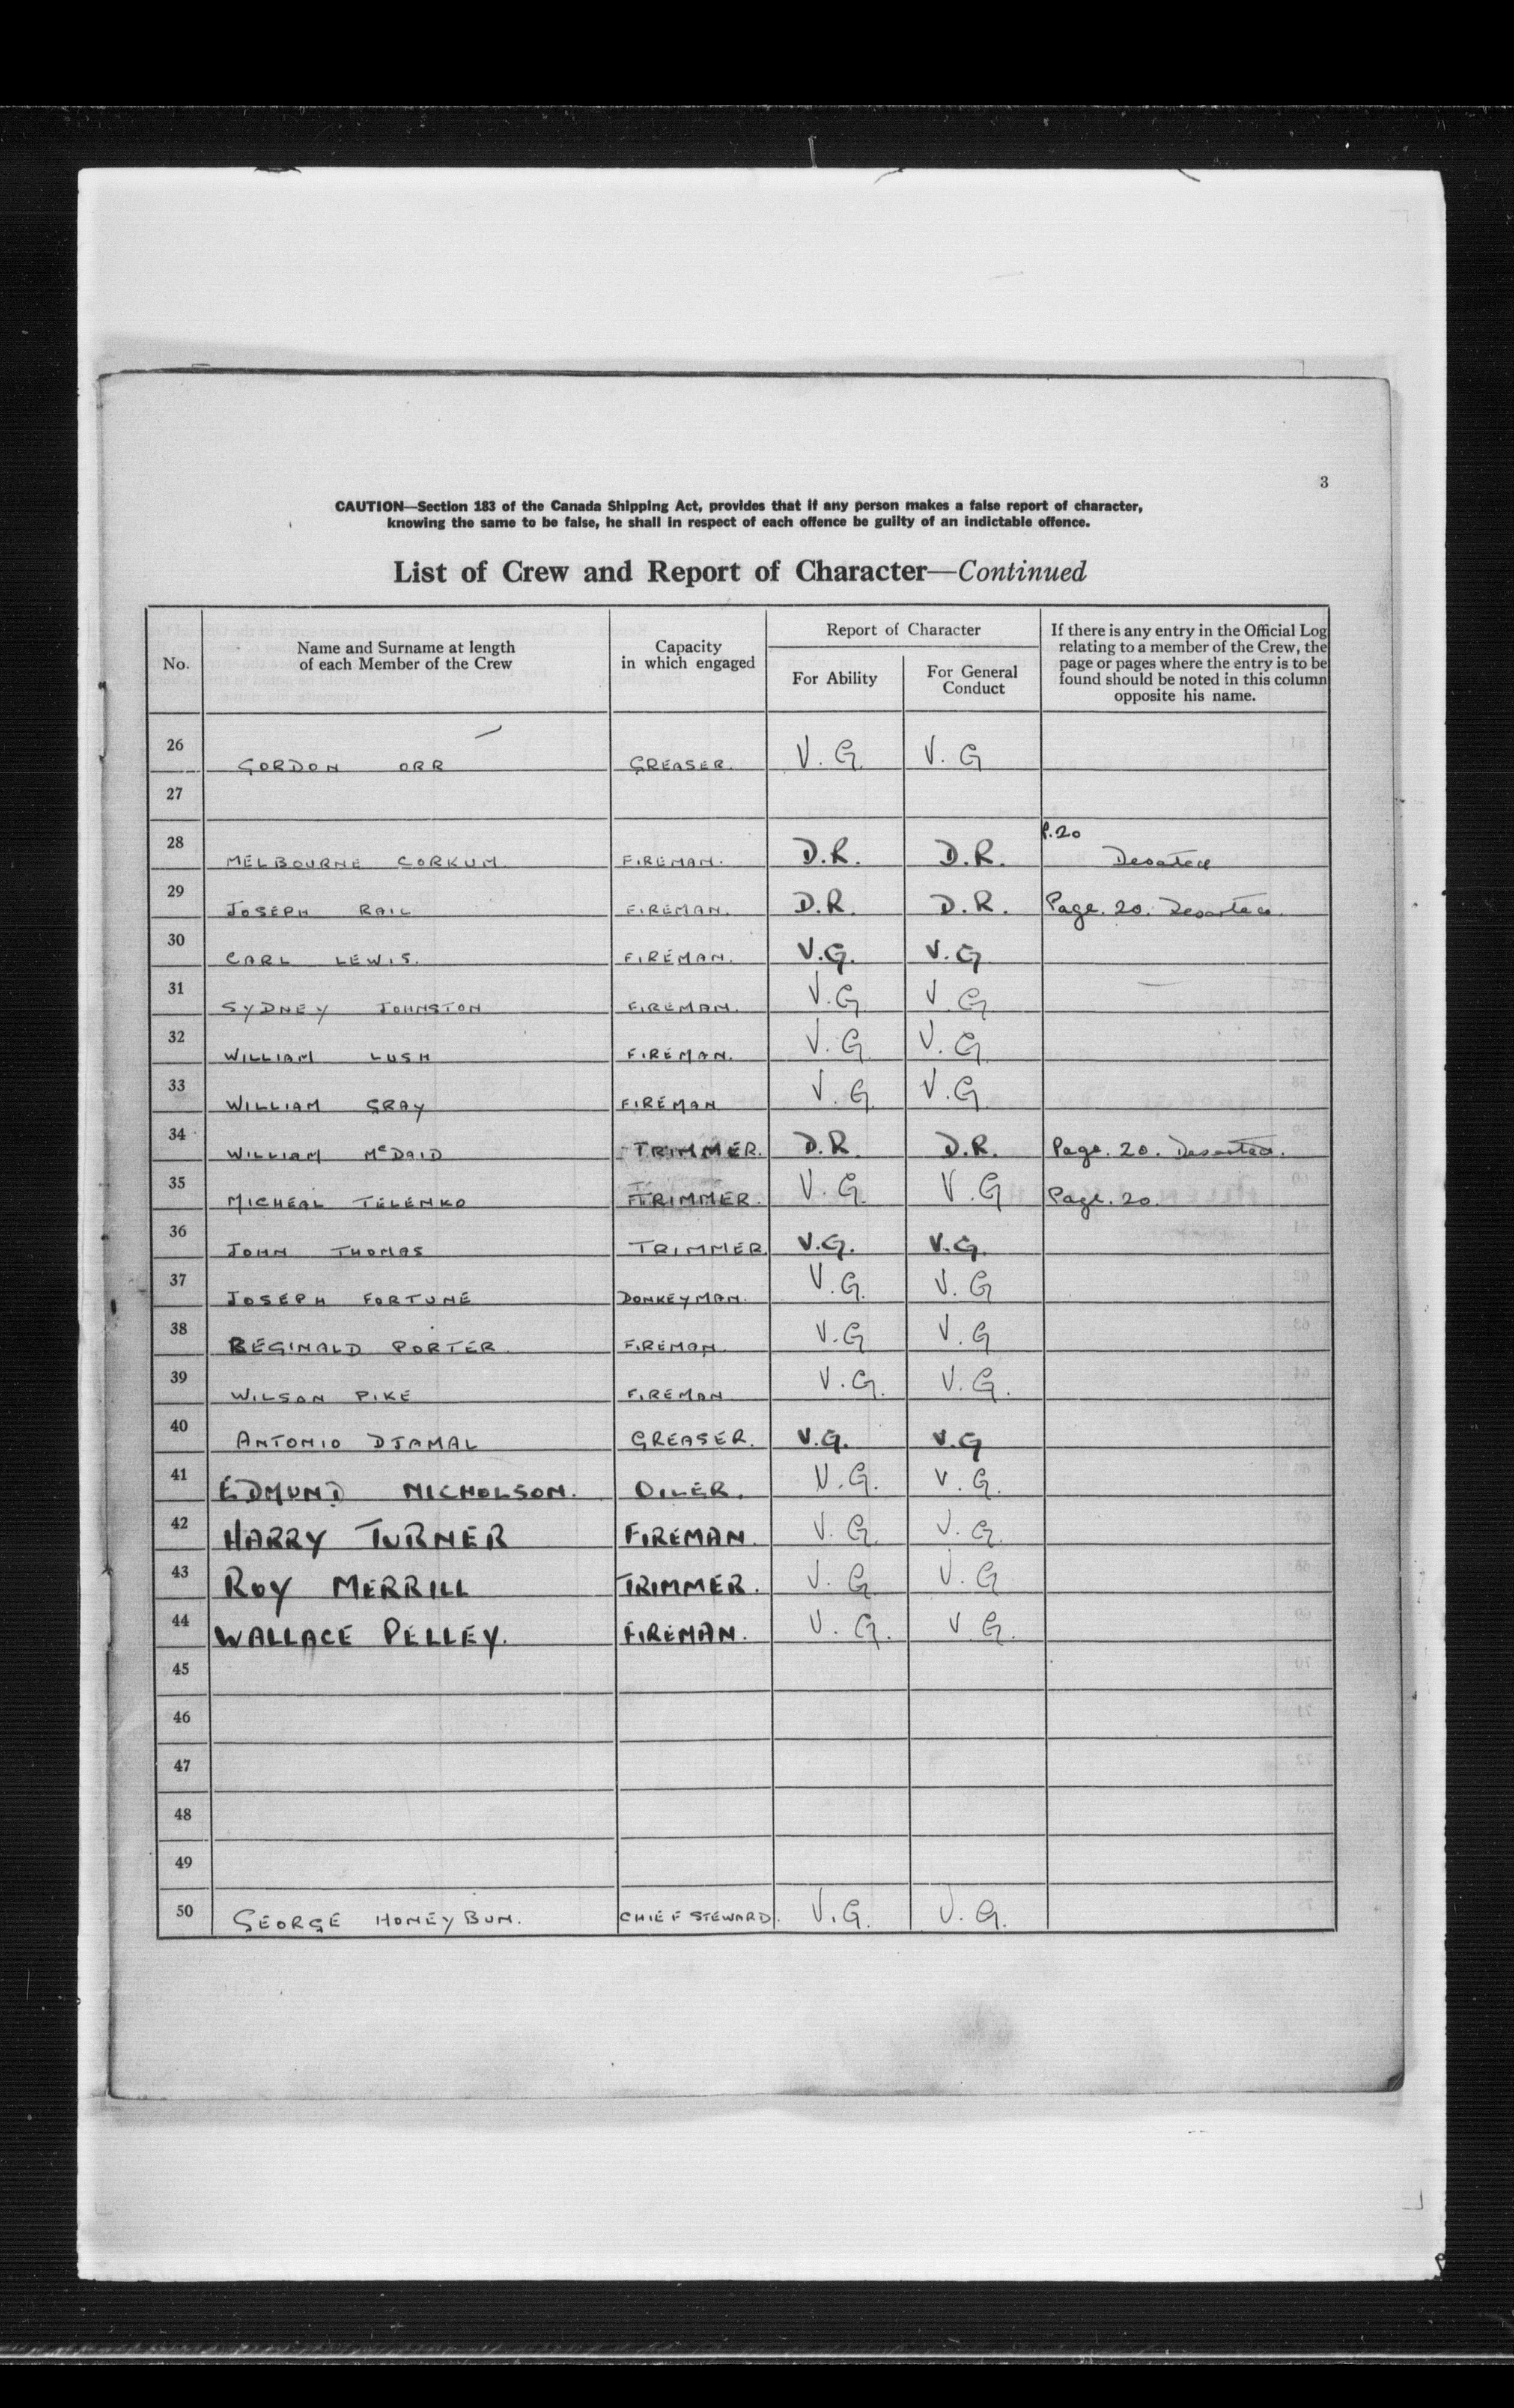 3
CAUTION—Section 183 of the Canada Shipping Act, provides that if any person makes a false report of character,
knowing the same to be false, he shall in respect of each offence be guilty of an indictable offence.
List of Crew and Report of Character—Continued
No.
Name and Surname at length
of each Member of the Crew
Capacity
in which engaged
Report of Character
For Ability
For General
Conduct
If there is any entry in the Official Log
relating to a member of the Crew, the
page or pages where the entry is to be
found should be noted in this column
opposite his name.
26 GORDON ORR GREASER. V. G. V. G
27
28 MELBOURNE CORKUM. FIREMAN. D.R. D.R. P.20 Deserted
29 JOSEPH RAIL FIREMAN. D.R. D.R. Page. 20. Deserted.
30 CARL LEWIS. FIREMAN. V.G. V.G
31 SYDNEY JOHNSTON FIREMAN. V.G V G
32 WILLIAM LUSH FIREMAN. V.G V.G
33 WILLIAM GRAY FIREMAN V.G. V.G
34 WILLIAM McDAID TRIMMER. D.R. D.R. Page. 20. Deserted.
35 MICHEAL TELENKO TRIMMER. V.G. V.G Page. 20.
36 JOHN THOMAS TRIMMER. V.G. V.G.
37 JOSEPH FORTUNE DONKEYMAN. V.G. V.G
38 REGINALD PORTER. FIREMAN. V.G V.G
39 WILSON PIKE FIREMAN V.G. V.G.
40 ANTONIO DJAMAL GREASER. V.G. V.G
41 EDMUND NICHOLSON. OILER. V.G. V.G.
42 HARRY TURNER FIREMAN. V.G. V.G.
43 ROY MERRILL TRIMMER. V.G V.G
44 WALLACE PELLEY. FIREMAN. V.G. V G.
45
46
47
48
49
50 GEORGE HONEYBUN. CHIEF STEWARD. V.G. V.G.